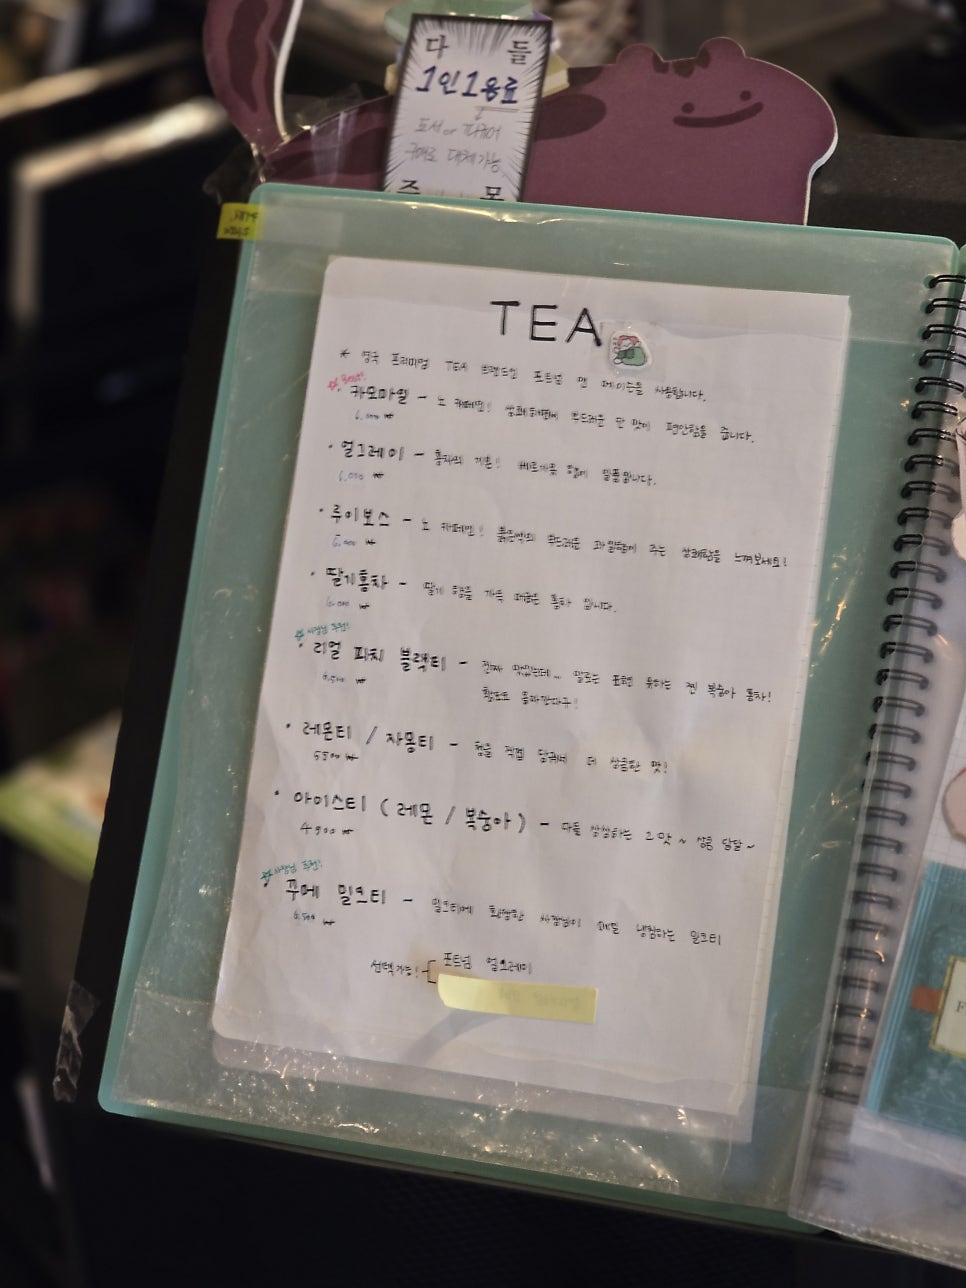 다들
1인1음료
도서 or 타로
구매로 대체가능
주목
TEA
* 영국 프리미엄 TEA 브랜드인 포트넘 앤 메이슨을 사용합니다.
Best!
카모마일 - 노 카페인! 상쾌해면서 부드러운 단 맛이 편안함을 줍니다.
6,000 ₩
· 얼그레이 - 홍차의 기본! 베르가못 향이 일품입니다.
6,000 ₩
· 루이보스 - 노 카페인! 붉은색의 부드러운 과일향이 주는 상쾌함을 느껴보세요!
6,000 ₩
· 딸기홍차 - 딸기 향을 가득 머금은 홍차 입니다.
6,000 ₩
사장님 추천!
· 리얼 피치 블랙티 - 진짜 맛있는데... 말로는 표현 못하는 찐 복숭아 홍차!
6,500 ₩
황도도 올라간다구!
· 레몬티 / 자몽티 - 청을 직접 담궈서 더 상큼한 맛!
5500 ₩
· 아이스티 ( 레몬 / 복숭아 ) - 다들 상상하는 그맛 ~ 상큼 달달 ~
4500 ₩
사장님 추천!
꾸메 밀크티 - 밀크티에 환장한 사장님이 매일 냉침하는 밀크티
6,500 ₩
선택가능! 포트넘 얼그레이
F